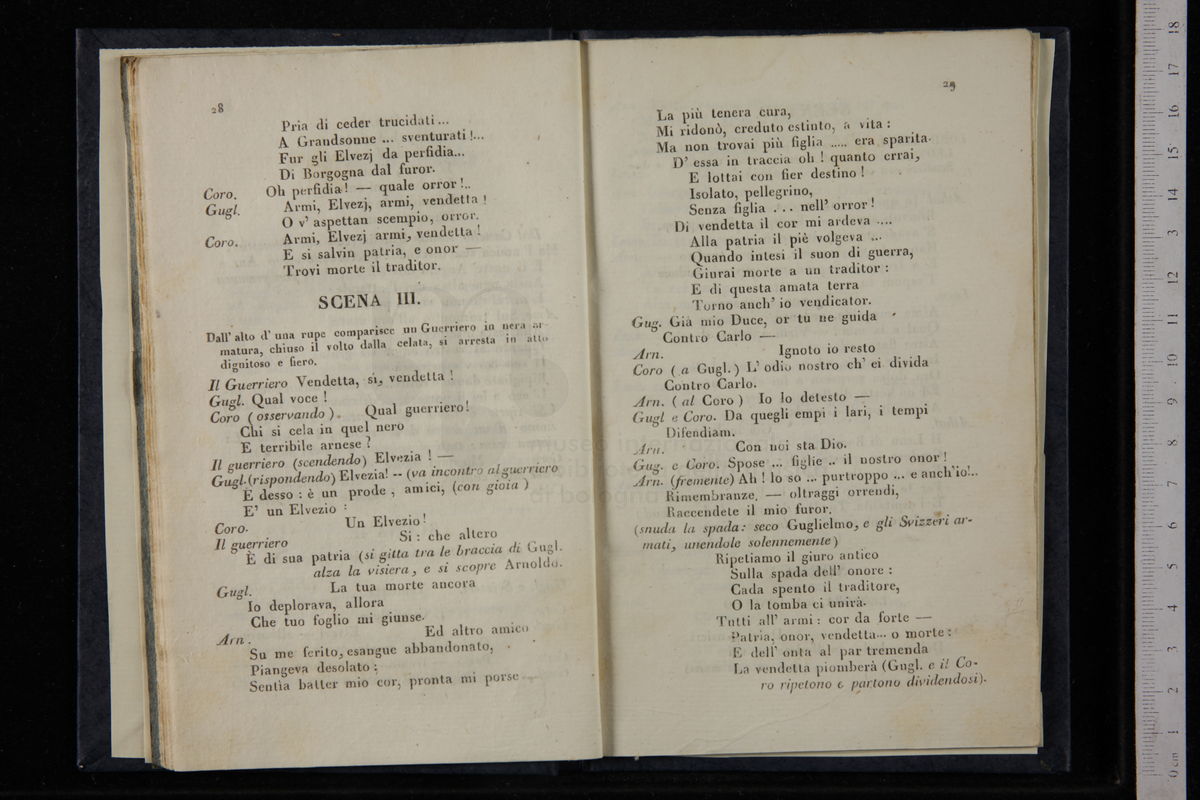 28
Pria di ceder trucidati ...
A Grandsonne ... sventurati !...
Fur gli Elvezj da perfidia...
Di Borgogna dal furor.
Coro. Oh perfidia! — quale orror !..
Gugl. Armi, Elvezj, armi, vendetta !
O v' aspettan scempio, orror.
Coro. Armi, Elvezj armi, vendetta !
E si salvin patria, e onor —
Trovi morte il traditor.
SCENA III.
Dall' alto d' una rupe comparisce un Guerriero in nera ar-
matura, chiuso il volto dalla celata, si arresta in atto
dignitoso e fiero.
Il Guerriero Vendetta, sì, vendetta !
Gugl. Qual voce !
Coro ( osservando ). Qual guerriero!
Chi si cela in quel nero
E terribile arnese ?
Il guerriero (scendendo) Elvezia ! —
Gugl. (rispondendo) Elvezia! -- (va incontro al guerriero
E desso : è un prode , amici, (con gioia )
E' un Elvezio :
Coro. Un Elvezio !
Il guerriero Si : che altero
È di sua patria (si gitta tra le braccia di Gugl.
alza la visiera, e si scopre Arnoldo.
Gugl. La tua morte ancora
Io deplorava, allora
Che tuo foglio mi giunse.
Arn. Ed altro amico
Su me ferito, esangue abbandonato,
Piangeva desolato ;
Sentìa batter mio cor, pronta mi porse
29
La più tenera cura,
Mi ridonò, creduto estinto, a vita :
Ma non trovai più figlia ..... era sparita.
D' essa in traccia oh ! quanto errai,
E lottai con fier destino !
Isolato, pellegrino,
Senza figlia . . . nell' orror !
Di vendetta il cor mi ardeva ....
Alla patria il piè volgeva ...
Quando intesi il suon di guerra,
Giurai morte a un traditor :
E di questa amata terra
Torno anch' io vendicator.
Gug. Già mio Duce, or tu ne guida
Contro Carlo —
Arn. Ignoto io resto
Coro ( a Gugl. ) L' odio nostro ch' ei divida
Contro Carlo.
Arn. ( al Coro ) Io lo detesto —
Gugl e Coro. Da quegli empi i lari, i tempi
Difendiam.
Arn. Con noi sta Dio.
Gug. e Coro. Spose ... figlie .. il nostro onor !
Arn. (fremente) Ah ! lo so ... purtroppo ... e anch'io!...
Rimembranze, — oltraggi orrendi,
Raccendete il mio furor.
(snuda la spada: seco Guglielmo, e gli Svizzeri ar-
mati, unendole solennemente)
Ripetiamo il giuro antico
Sulla spada dell' onore :
Cada spento il traditore,
O la tomba ci unirà.
Tutti all' armi : cor da forte —
Patria, onor, vendetta... o morte :
E dell' onta al par tremenda
La vendetta piomberà (Gugl. e il Co-
ro ripetono e partono dividendosi).